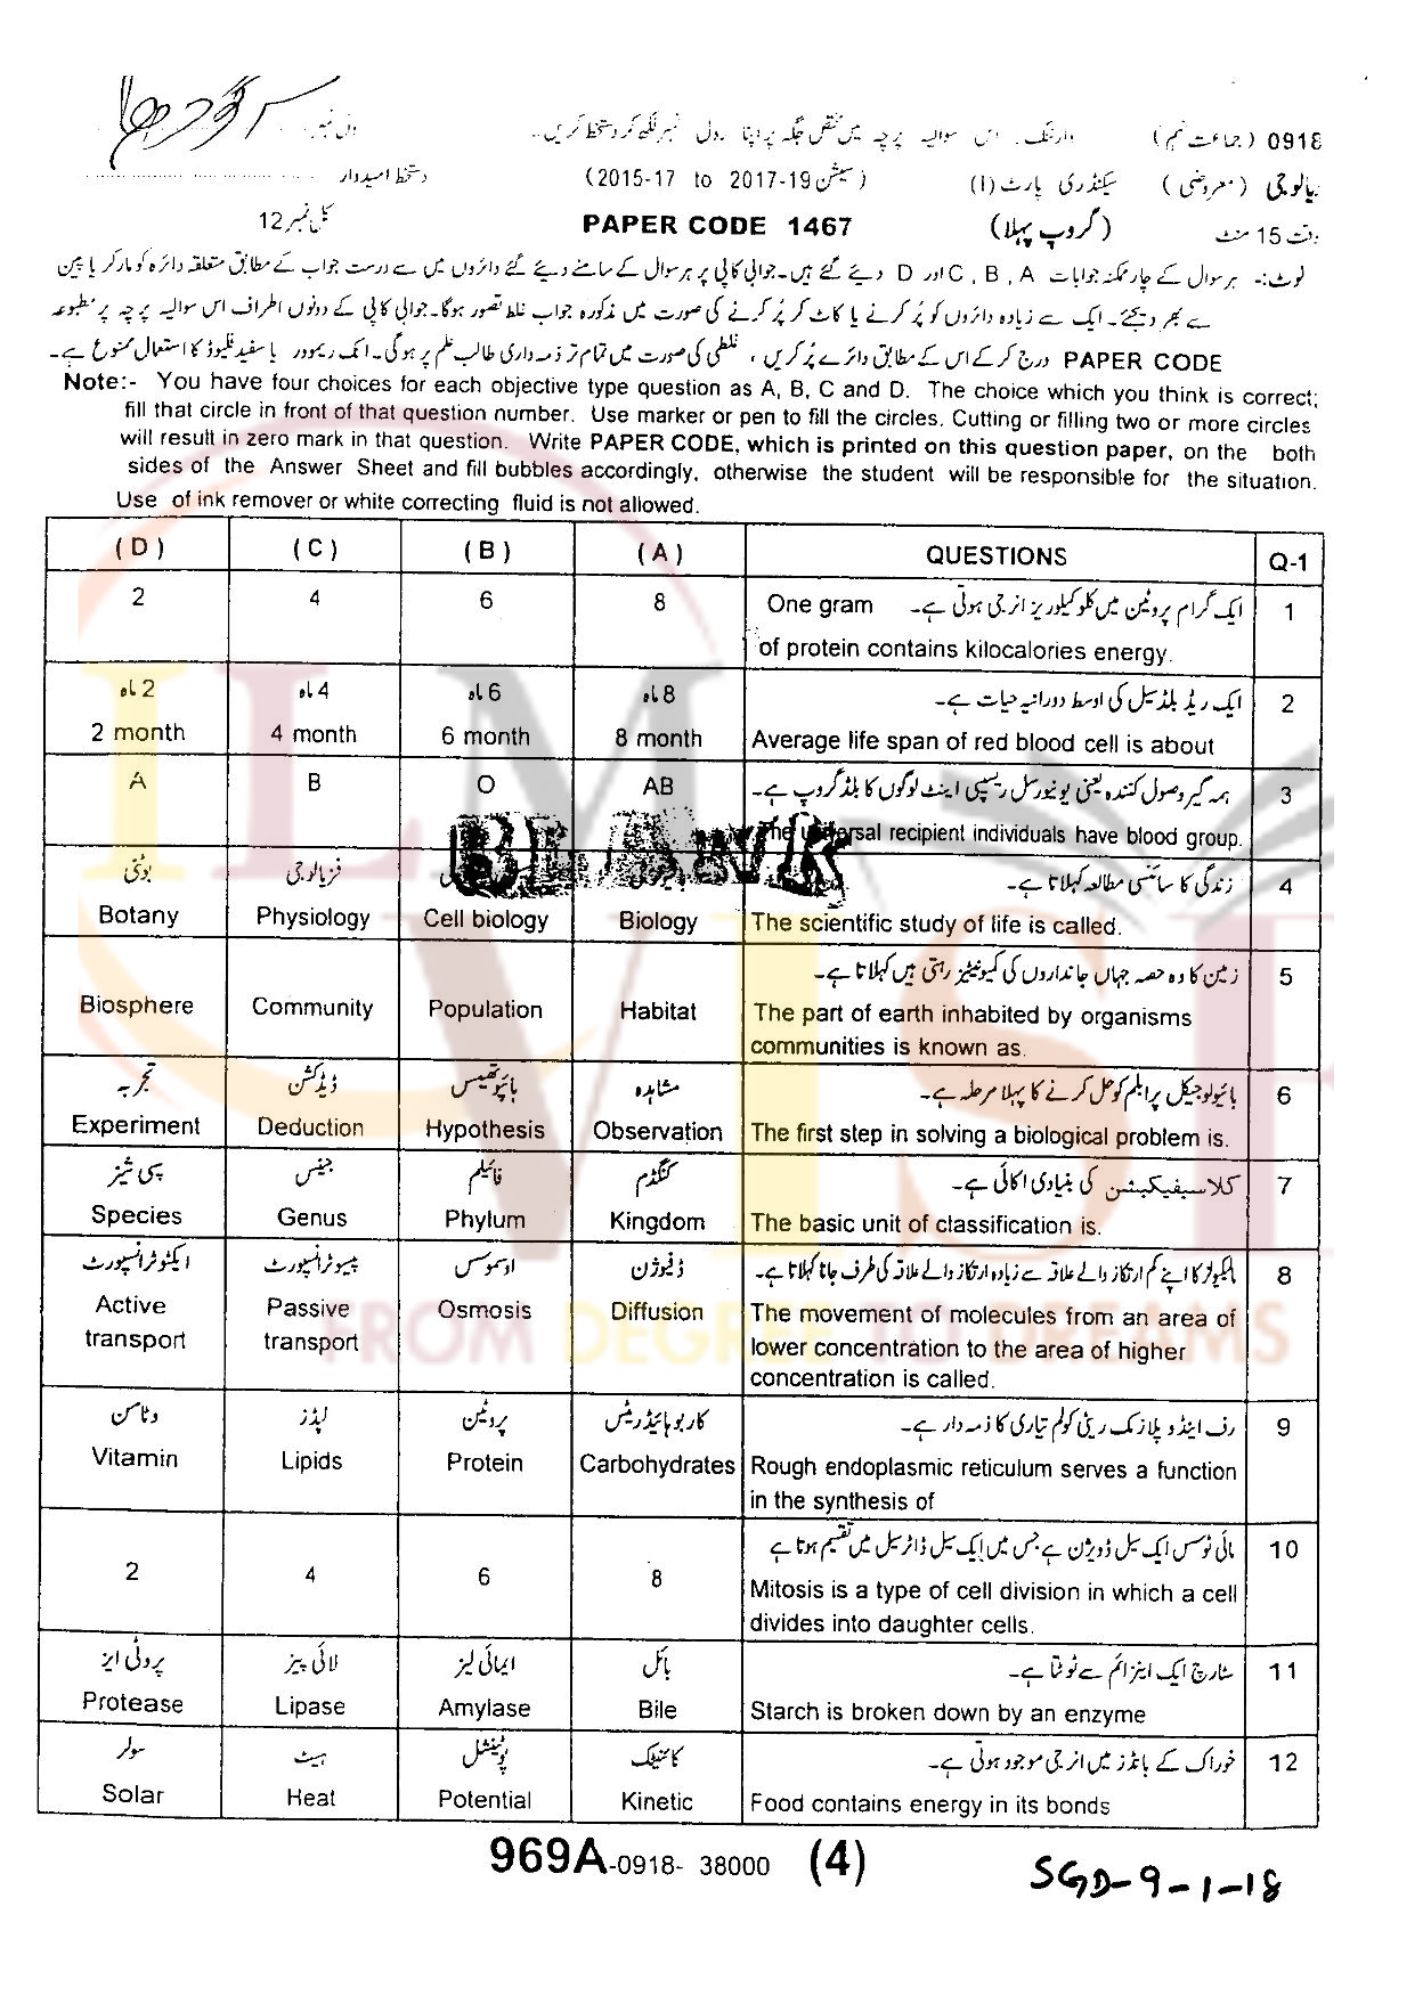 0918 (جماعت نہم) وارننگ۔ اس سوالیہ پرچہ میں مختص جگہ پر اپنا رول نمبر لکھ کر دستخط کریں۔ رول نمبر
بیالوجی (معروضی) سیکنڈری پارٹ (I) (2015-17 to 2017-19 سیشن) دستخط امیدوار
وقت 15 منٹ (گروپ پہلا) PAPER CODE 1467 کل نمبر 12
نوٹ:- ہر سوال کے چار ممکنہ جوابات A , B , C اور D دیئے گئے ہیں۔ جوابی کاپی پر ہر سوال کے سامنے دیئے گئے دائروں میں سے درست جواب کے مطابق متعلقہ دائرہ کو مارکر یا پین
سے بھر دیجئے۔ ایک سے زیادہ دائروں کو پُر کرنے یا کاٹ کر پُر کرنے کی صورت میں مذکورہ جواب غلط تصور ہوگا۔ جوابی کاپی کے دونوں اطراف اس سوالیہ پرچہ پر مطبوعہ
PAPER CODE درج کر کے اس کے مطابق دائرے پُر کریں، غلطی کی صورت میں تمام تر ذمہ داری طالب علم پر ہوگی۔ انک ریموور یا سفید فلیوڈ کا استعمال ممنوع ہے۔
Note:- You have four choices for each objective type question as A, B, C and D. The choice which you think is correct;
fill that circle in front of that question number. Use marker or pen to fill the circles. Cutting or filling two or more circles
will result in zero mark in that question. Write PAPER CODE, which is printed on this question paper, on the both
sides of the Answer Sheet and fill bubbles accordingly, otherwise the student will be responsible for the situation.
Use of ink remover or white correcting fluid is not allowed.
( D ) ( C ) ( B ) ( A ) QUESTIONS Q-1
2 4 6 8 One gram ایک گرام پروٹین میں کلو کیلوریز انرجی ہوتی ہے۔ 1
of protein contains kilocalories energy.
2 ماہ 4 ماہ 6 ماہ 8 ماہ ایک ریڈ بلڈ سیل کی اوسط دورانیہ حیات ہے۔ 2
2 month 4 month 6 month 8 month Average life span of red blood cell is about
A B O AB ہمہ گیر وصول کنندہ یعنی یونیورسل ریسیپی اینٹ لوگوں کا بلڈ گروپ ہے۔ 3
The universal recipient individuals have blood group.
BLANK
بوٹنی فزیالوجی زندگی کا سائنسی مطالعہ کہلاتا ہے۔ 4
Botany Physiology Cell biology Biology The scientific study of life is called.
زمین کا وہ حصہ جہاں جانداروں کی کمیونیٹیز رہتی ہیں کہلاتا ہے۔ 5
Biosphere Community Population Habitat The part of earth inhabited by organisms
communities is known as.
تجربہ ڈیڈکشن ہائپوتھیسس مشاہدہ بائیولوجیکل پرابلم کو حل کرنے کا پہلا مرحلہ ہے۔ 6
Experiment Deduction Hypothesis Observation The first step in solving a biological problem is.
سپی شیز جینس فائیلم کنگڈم کلاسیفیکیشن کی بنیادی اکائی ہے۔ 7
Species Genus Phylum Kingdom The basic unit of classification is.
ایکٹو ٹرانسپورٹ پیسو ٹرانسپورٹ اوسموسس ڈفیوژن مالیکیولز کا اپنے کم ارتکاز والے علاقہ سے زیادہ ارتکاز والے علاقہ کی طرف جانا کہلاتا ہے۔ 8
Active transport Passive transport Osmosis Diffusion The movement of molecules from an area of
lower concentration to the area of higher
concentration is called.
وٹامن لپڈز پروٹین کاربوہائیڈریٹس رف اینڈوپلازمک ریٹی کولم تیاری کا ذمہ دار ہے۔ 9
Vitamin Lipids Protein Carbohydrates Rough endoplasmic reticulum serves a function
in the synthesis of
2 4 6 8 مائی ٹوسس ایک سیل ڈویژن ہے جس میں ایک سیل ڈاٹر سیل میں تقسیم ہوتا ہے 10
Mitosis is a type of cell division in which a cell
divides into daughter cells.
پروٹی ایز لائی پیز ایمائی لیز بائل سٹارچ ایک اینزائم سے ٹوٹتا ہے۔ 11
Protease Lipase Amylase Bile Starch is broken down by an enzyme
سولر ہیٹ پوٹینشل کائنیٹک خوراک کے بانڈز میں انرجی موجود ہوتی ہے۔ 12
Solar Heat Potential Kinetic Food contains energy in its bonds
969A-0918- 38000 (4)
SGD-9-1-18
ILM
VISI
FROM DEGREE TO DREAMS